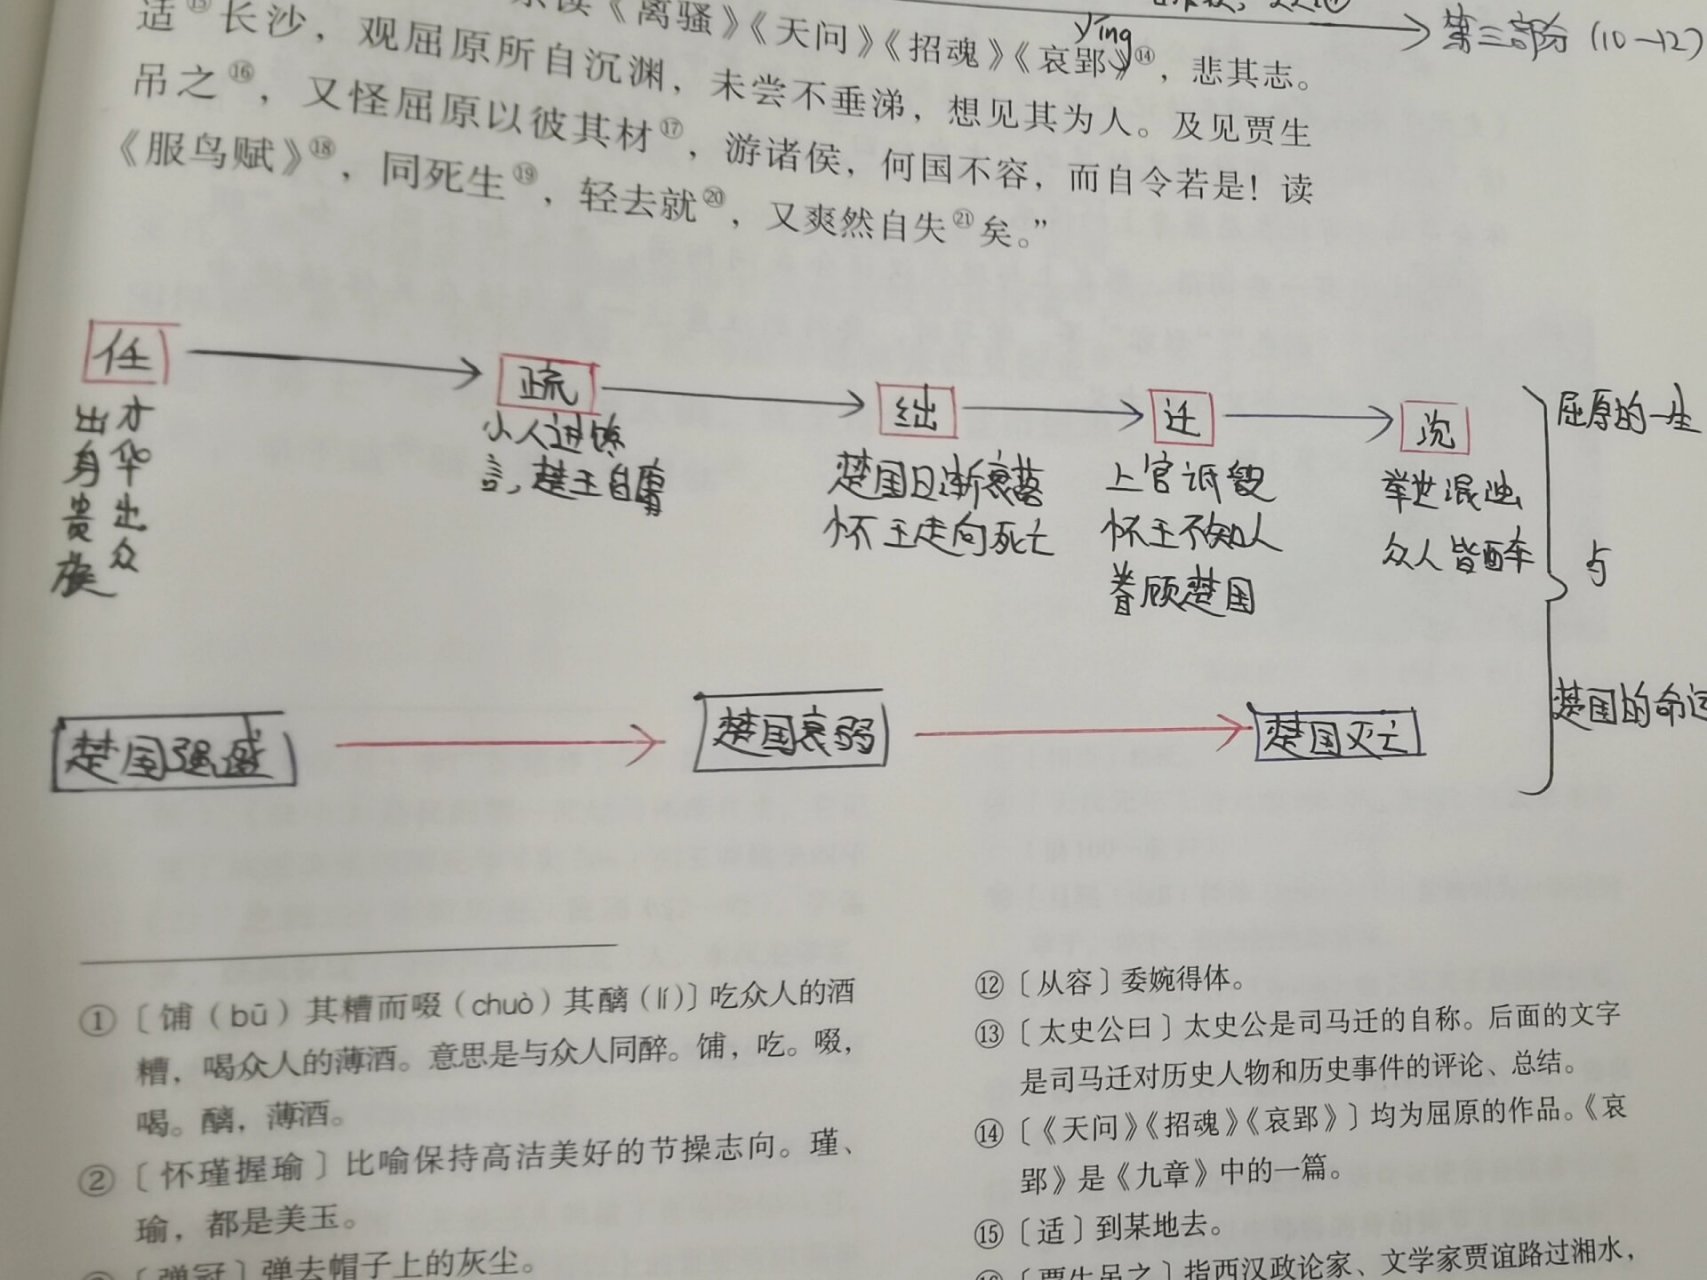 适⑮长沙，观屈原所自沉渊，未尝不垂涕，想见其为人。及见贾生
读《离骚》《天问》《招魂》《哀郢》⑭，悲其志。
yǐng
第三部分（10-12）
吊之⑯，又怪屈原以彼其材⑰，游诸侯，何国不容，而自令若是！读
《服鸟赋》⑱，同死生⑲，轻去就⑳，又爽然自失㉑矣。”
任
疏
绌
迁
沉
出身贵族
才华出众
小人进馋
言，楚王自庸
楚国日渐衰落
怀王走向死亡
上官诋毁
怀王不知人
眷顾楚国
举世混浊
众人皆醉
屈原的一生
与
楚国的命运
楚国强盛
楚国衰弱
楚国灭亡
①〔铺（bū）其糟而啜（chuò）其醨（lí）〕吃众人的酒
糟，喝众人的薄酒。意思是与众人同醉。铺，吃。啜，
喝。醨，薄酒。
②〔怀瑾握瑜〕比喻保持高洁美好的节操志向。瑾、
瑜，都是美玉。
〔弹冠〕弹去帽子上的灰尘。
⑫〔从容〕委婉得体。
⑬〔太史公曰〕太史公是司马迁的自称。后面的文字
是司马迁对历史人物和历史事件的评论、总结。
⑭〔《天问》《招魂》《哀郢》〕均为屈原的作品。《哀
郢》是《九章》中的一篇。
⑮〔适〕到某地去。
〔贾生吊之〕指西汉政论家、文学家贾谊路过湘水，